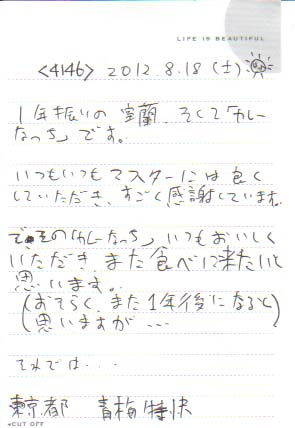 LIFE IS BEAUTIFUL
<4146> 2012.8.18(土)
1年振りの室蘭、そして「カレー
なっち」です。
いつもいつもマスターには良く
していただき、すごく感謝しています。
その「カレーなっち」、いつもおいしく
いただき、また食べに来たいと
思います。
(おそらく、また1年後になると
思いますが…)
それでは...
東京都 青梅特快
◂CUT OFF